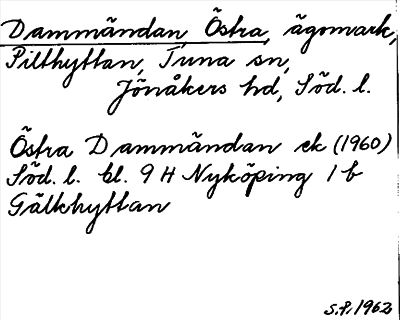 Dammändan, Östra, ägomark,
Pilthyttan, Tuna sn,
Jönåkers hd, Söd. l.
Östra Dammändan ek (1960)
Söd. l. bl. 9 H Nyköping 1 b
Gälkhyttan
S.P. 1962